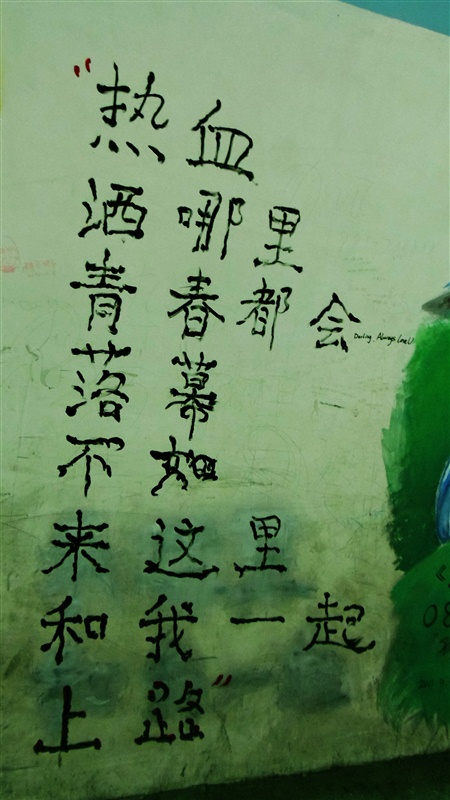 "热血
洒哪里
青春都会
Darling. Always Love U
落幕
不如
来这里
和我一起
上路"
08